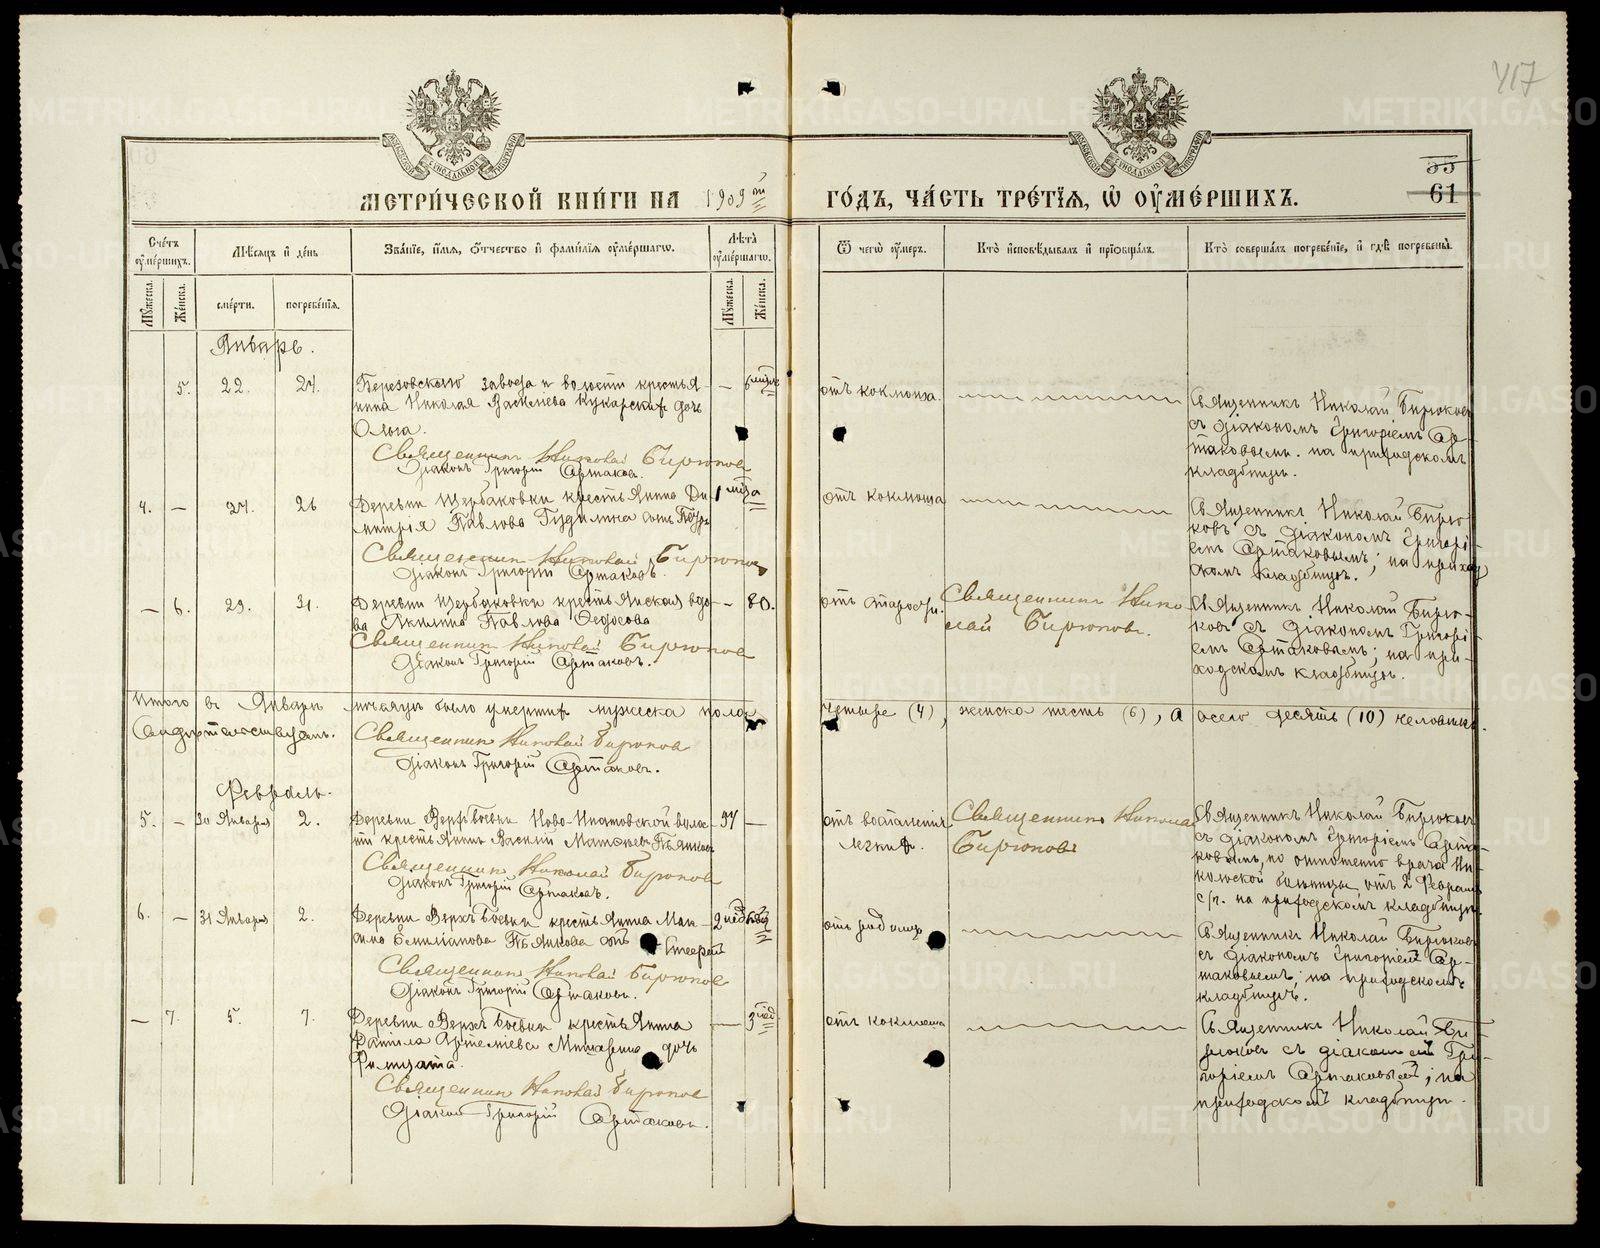 417
55
61
МЕТРИ́ЧЕСКОЙ КНИ́ГИ НА 1909 й
ГО́ДЪ, ЧА́СТЬ ТРЕ́ТЇѦ, Ѡ҆ ОУ҆МЕ́РШИХЪ.
Сче́тъ оу҆ме́ршихъ.
Мѣ́сѧцъ и҆ де́нь
Зва́нїе, и҆́мѧ, ѻ҆́тчество и҆ фами́лїѧ оу҆ме́ршагѡ.
Лѣ́та оу҆ме́ршагѡ.
Ѿ чегѡ̀ оу҆́меръ.
Кто̀ и҆сповѣ́дывалъ и҆ прїѡбща́лъ.
Кто̀ соверша́лъ погребе́нїе, и҆ гдѣ̀ погребены̀.
Мꙋ́жеска.
Же́нска.
сме́рти.
погребе́нїѧ.
Мꙋ́жеска.
Же́нска.
Январь.
5. 22. 24. Березовского завода и волости крестья-
нина Николая Васильева дочь
Ольга.
Священникъ Николай Бирюковъ
Діаконъ Григорій Артаковъ.
отъ коклюша.
Священникъ Николай Бирюковъ
съ діакономъ Григоріемъ Ар-
таковымъ. на приходскомъ
кладбищѣ.
4. — 24. 26 Деревни Щербаковки крестьянина Ди-
митрія Павлова сынъ Петръ
1
Священникъ Николай Бирюковъ
Діаконъ Григорій Артаковъ.
отъ коклюша
Священникъ Николай Бирю-
ковъ съ діакономъ Григорі-
емъ Артаковымъ; на приход-
комъ кладбищѣ.
— 6. 29. 31. Деревни Щербаковки крестьянская вдо-
ва Акилина Павлова Федосова
— 80.
Священникъ Николай Бирюковъ
Діаконъ Григорій Артаковъ.
отъ старости.
Священникъ Нико-
лай Бирюковъ.
Священникъ Николай Бирю-
ковъ съ діакономъ Григорі-
емъ Артаковымъ; на при-
ходскомъ кладбищѣ.
Итого въ Январѣ мѣсяцѣ было умершихъ мужеска пола
четыре (4), женска шесть (6), а всего десять (10) человѣкъ.
Священникъ Николай Бирюковъ
Діаконъ Григорій Артаковъ.
Февраль.
5. — 30 Января 2. Деревни Верхъ Боевки Ново-Ипатовской воло-
сти крестьянинъ Василій Пьянковъ
—
Священникъ Николай Бирюковъ
Діаконъ Григорій Артаковъ.
отъ воспаленія
легкихъ.
Священникъ Николай
Бирюковъ
Священникъ Николай Бирюковъ
съ діакономъ Григоріемъ Арта-
ковымъ, по отношенію врача Ни-
кольской больницы отъ 2 Февраля
с/г. на приходскомъ кладбищѣ.
6. — 31 Января 2. Деревни Верхъ Боевки крестьянина Мак-
сима Емиліанова Пьянкова сынъ
Священникъ Николай Бирюковъ
Діаконъ Григорій Артаковъ.
отъ родимца
Священникъ Николай Бирюковъ
съ діакономъ Григоріемъ Ар-
таковымъ; на приходскомъ
кладбищѣ.
— 7. 5. 7. Деревни Верхъ Боевки крестьянина
Данила Артеміева дочь
Фелицата.
— 3 нед
Священникъ Николай Бирюковъ
Діаконъ Григорій Артаковъ.
отъ коклюша
Священникъ Николай Би-
рюковъ съ діакономъ Гри-
горіемъ Артаковымъ; на
приходскомъ кладбищѣ.
METRIKI.GASO-URAL.RU